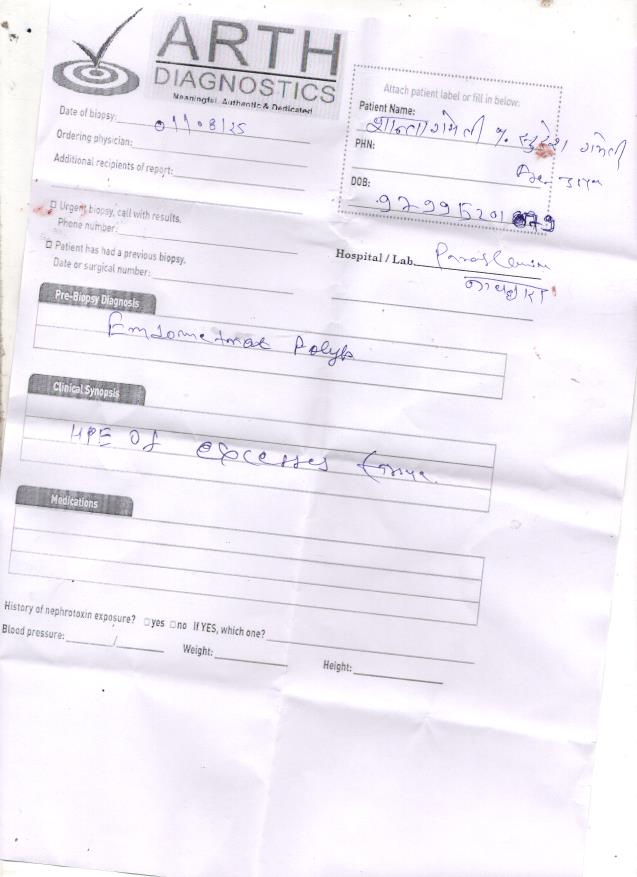 ARTH
DIAGNOSTICS
Meaningful, Authentic & Dedicated
Attach patient label or fill in below:
Patient Name:
शान्ता गमेती %
गमेती
PHN:
DOB:
Date of biopsy: 01/08/25
Ordering physician:
Additional recipients of report:
Urgent biopsy, call with results.
Phone number:
Patient has had a previous biopsy.
Date or surgical number:
Hospital / Lab.
Pre-Biopsy Diagnosis
Endometrial Polyp
Clinical Synopsis
HPE Of excesses
Medications
History of nephrotoxin exposure? yes no If YES, which one?
Blood pressure: / Weight: Height: